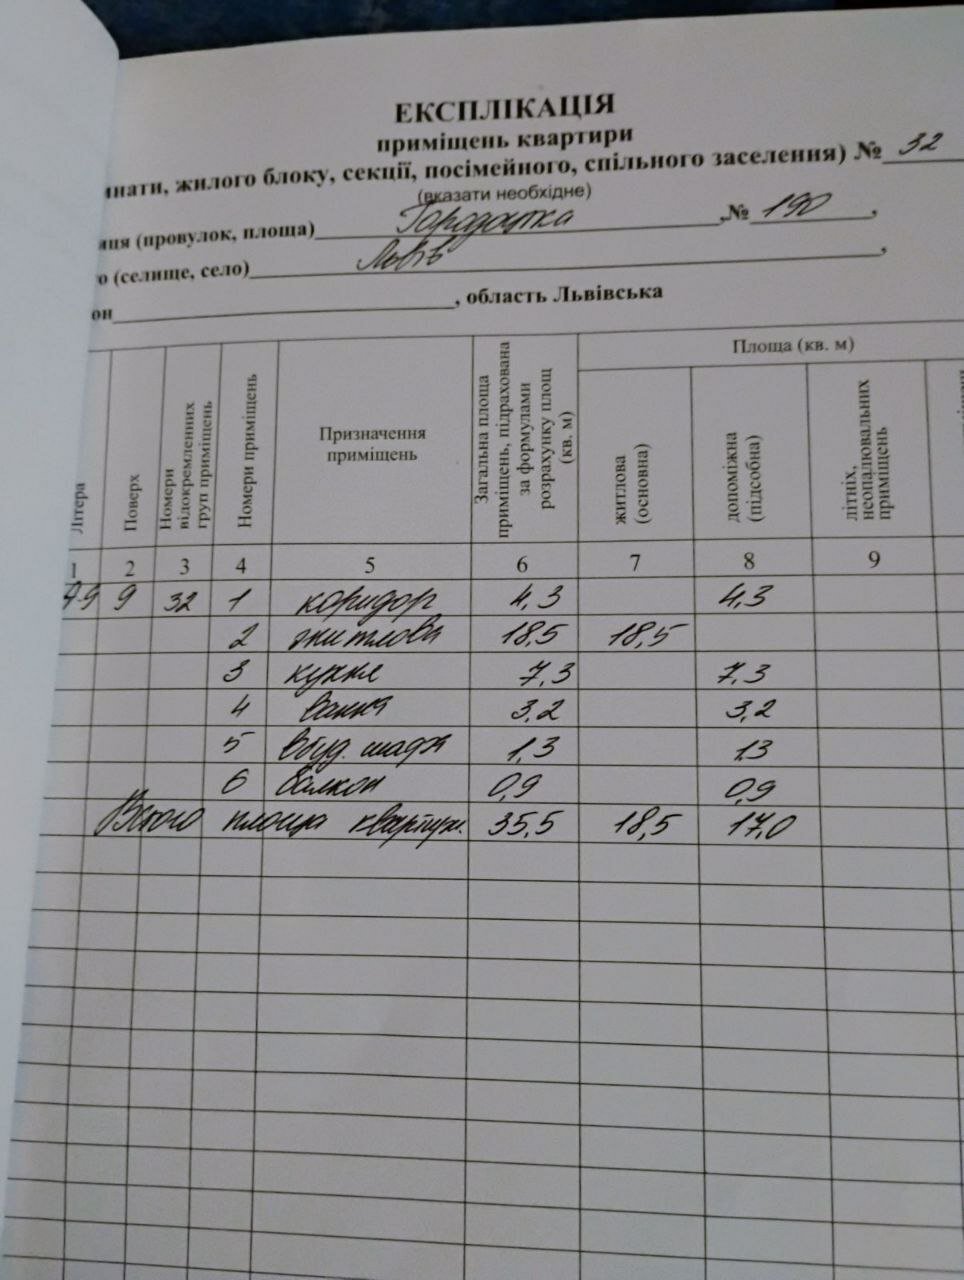 ЕКСПЛІКАЦІЯ
приміщень квартири
мнати, жилого блоку, секції, посімейного, спільного заселення) № 32
(вказати необхідне)
иця (провулок, площа) Городоцька, № 190,
о (селище, село) Львів,
он, область Львівська
Літера Поверх Номери відокремлених груп приміщень Номери приміщень Призначення приміщень Загальна площа приміщень, підрахована за формулами розрахунку площ (кв. м) Площа (кв. м)
житлова (основна) допоміжна (підсобна) літніх, неопалювальних приміщень
1 2 3 4 5 6 7 8 9
А-9 9 32 1 коридор 4,3 4,3
2 житлова 18,5 18,5
3 кухня 7,3 7,3
4 ванна 3,2 3,2
5 вбуд. шафа 1,3 1,3
6 балкон 0,9 0,9
Всього площа квартири. 35,5 18,5 17,0